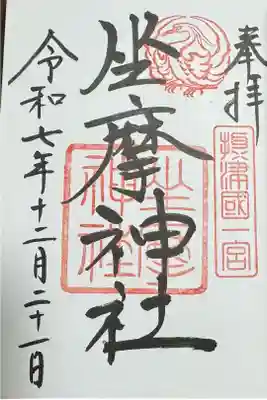 奉拝
摂津國一宮
坐摩神社
令和七年十二月二十一日